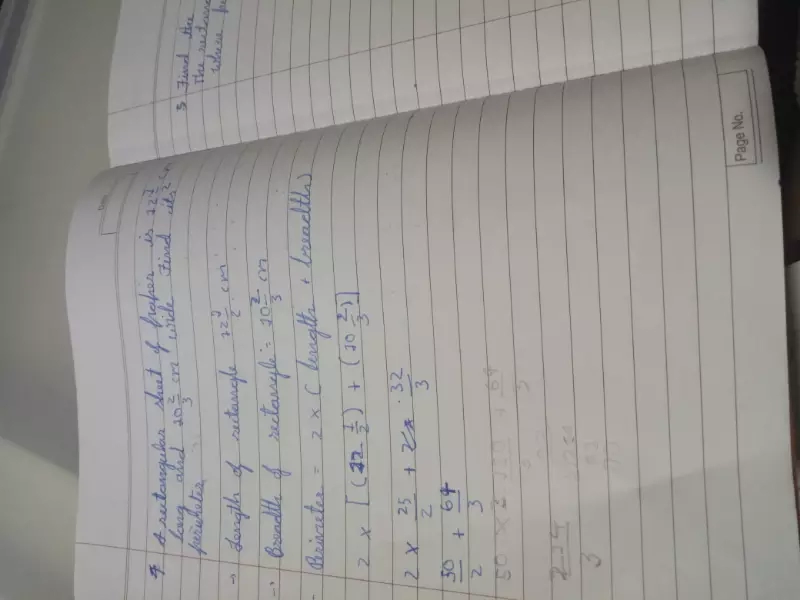 Date
4 A rectangular sheet of paper is 12 1/2 cm
long and 10 2/3 cm wide Find its
perimeter
→ Length of rectangle 12 1/2 cm
→ Breadth of rectangle = 10 2/3 cm
Perimeter = 2 × ( length + breadth)
2 × [ (12 1/2) + (10 2/3) ]
2 × 25/2 + 2 × 32/3
50/2 + 64/3
5 Find the
The rectan
where pe
Page No.